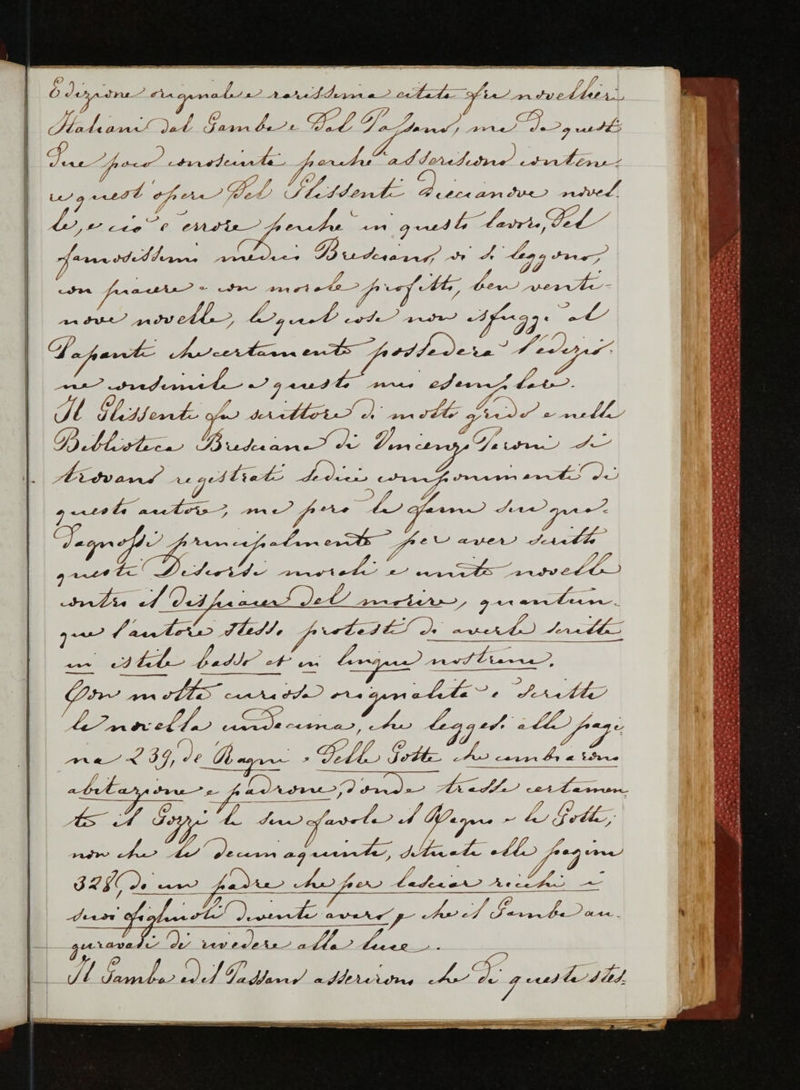 Edizione originale e rarissima citata fra novellieri
Italiani dal Gamba e Dal Passano, ma da questi
due poco conosciuta perchè asserirono contene-
re quest'opera del Glissenti diecianove novel-
le, e ciò è errore perchè in questo lavoro, del
famosissimo medico Bresciano, vi si leggono,
con piacere e con morale profitto, ben venti-
nove novelle, la qual cosa non isfuggì al
Papanti che certamente possedera l'edizio-
ne consimile a questo mio esemplare.
Il Glissenti fu scrittore di molto grido e nella
Biblioteca Bresciana di Vincenzo Peroni si
trovano registrati sedici componimenti di
questo autore, ma però la fama sua gua-
dagnossi principalmente per aver scritto
questi Discorsi morali e unite novelle
contro il dispiacer del morire, quantun-
que l'autore stesso protesti di averle scritte
in istile basso et in lingua nostrana.
Con molta curiosa originalità è scritta
la novella undecima, che leggesi alla pagi-
na 239, de Ragni e delle Gotte che cambiarono
abitazione e padrone, d'onde trasse certamen-
te il Gozzi la sua favola il Ragno e la Gotta;
non che la decimaquinta, situata alla pagina
328, di un padre che per lasciar ricchi i
suoi figliuoli diventa avaro, e che il Gamba au-
guravasi di rivedere alla luce.
Il Gamba ed il Passano asserirono che di questa stes-